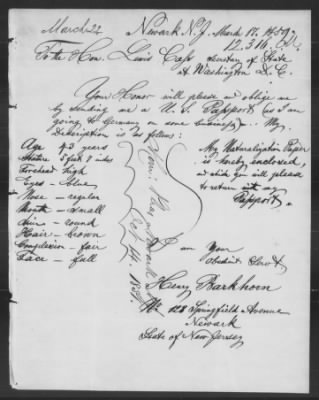 March 22
Newark N.J. March 17. 1859.
12.316,
To the Hon. Lewis Cass secretary of State
at Washington D. C.
Your Honor will please and oblige me
by sending me a U. S. Passport (as I am
going to Germany on some business). My
description is as follows:
Age 43 years
Stature 5 feet 8 inches
Forehead high
Eyes – blue
Nose – regular
Mouth – small
Chin – round
Hair – brown
Complexion – fair
Face – full
My Naturalization Paper
is hereby enclosed,
which you will please
to return with my
Passport.
I am Your
obedient Servt
Henry Barkhorn
No 128 Springfield Avenue
Newark
State of New Jersey